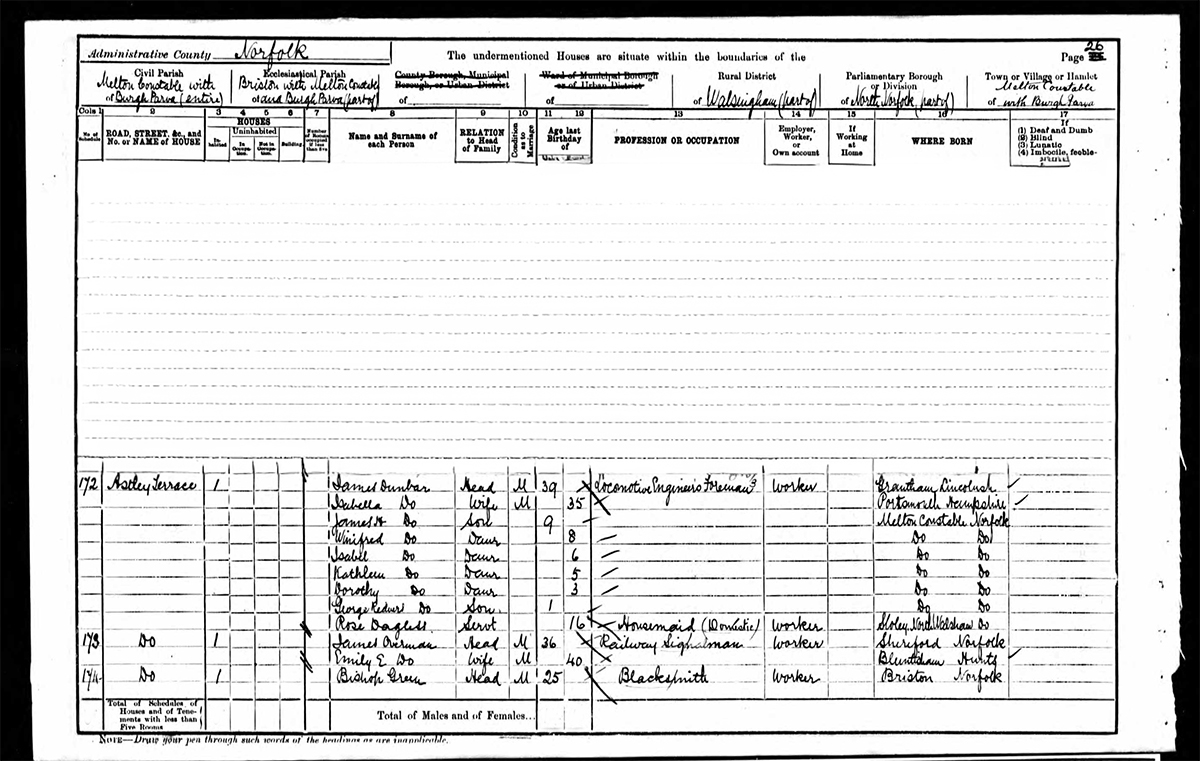 Administrative County Norfolk The undermentioned Houses are situate within the boundaries of the Page 26
Civil Parish Ecclesiastical Parish County Borough, Municipal Borough, or Urban District Ward of Municipal Borough or of Urban District Rural District Parliamentary Borough or Division Town or Village or Hamlet
of Melton Constable with Burgh Parva (entire) of Briston with Melton Constable and Burgh Parva (part of) of of of Walsingham (part of) of North Norfolk (part of) of Melton Constable with Burgh Parva
Cols 1 2 3 4 5 6 7 8 9 10 11 12 13 14 15 16 17
No. of Schedule ROAD, STREET, &c., and No. or NAME of HOUSE HOUSES Inhabited Uninhabited In Occupation. Not in Occupation. Building. Number of Rooms occupied if less than five Name and Surname of each Person RELATION to Head of Family Condition as to Marriage Age last Birthday of PROFESSION OR OCCUPATION Employer, Worker, or Own account If Working at Home WHERE BORN If (1) Deaf and Dumb (2) Blind (3) Lunatic (4) Imbecile, feeble-
172 Astley Terrace 1 James Dunbar Head M 39 Locomotive Engineers Foreman Worker Grantham Lincolnsh
Isabella Do Wife M 35 Hampshire
James H Do Son 9 Melton Constable Norfolk
Winifred Do Daur 8 Do Do
Isabel Do Daur 6 Do Do
Kathleen Do Daur 5 Do Do
Dorothy Do Daur 3 Do Do
George Redvers Do Son 1 Do Do
Rose Servt 16 Housemaid (Domestic) worker Do
173 Do 1 James Overman Head M 36 Railway Signalman worker Shereford Norfolk
Emily E. Do Wife M 40 Bluntisham Hunts
174 Do 1 Bishop Green Head M 25 Blacksmith Worker Briston Norfolk
Total of Schedules of Houses and of Tenements with less than Five Rooms Total of Males and of Females...
NOTE—Draw your pen through such words of the headings as are inapplicable.